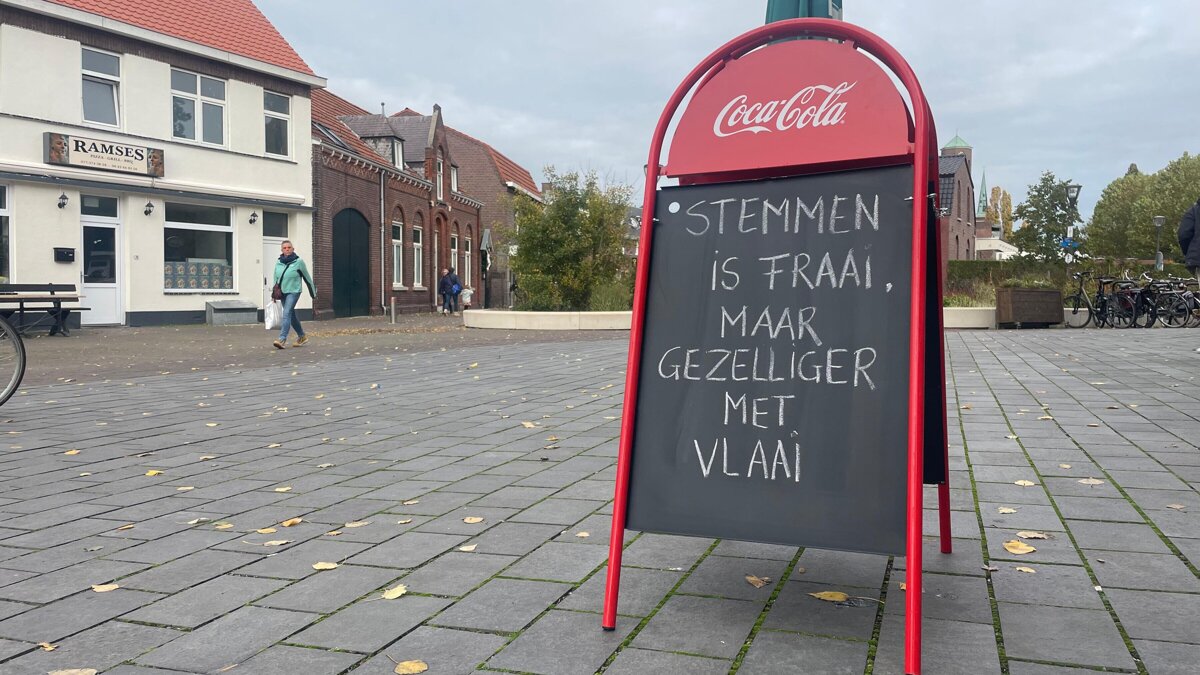 Coca-Cola
STEMMEN
iS FRAAi,
MAAR
GEZELLiGER
MET
VLAAi
RAMSES
PIZZA - GRILL - BBQ